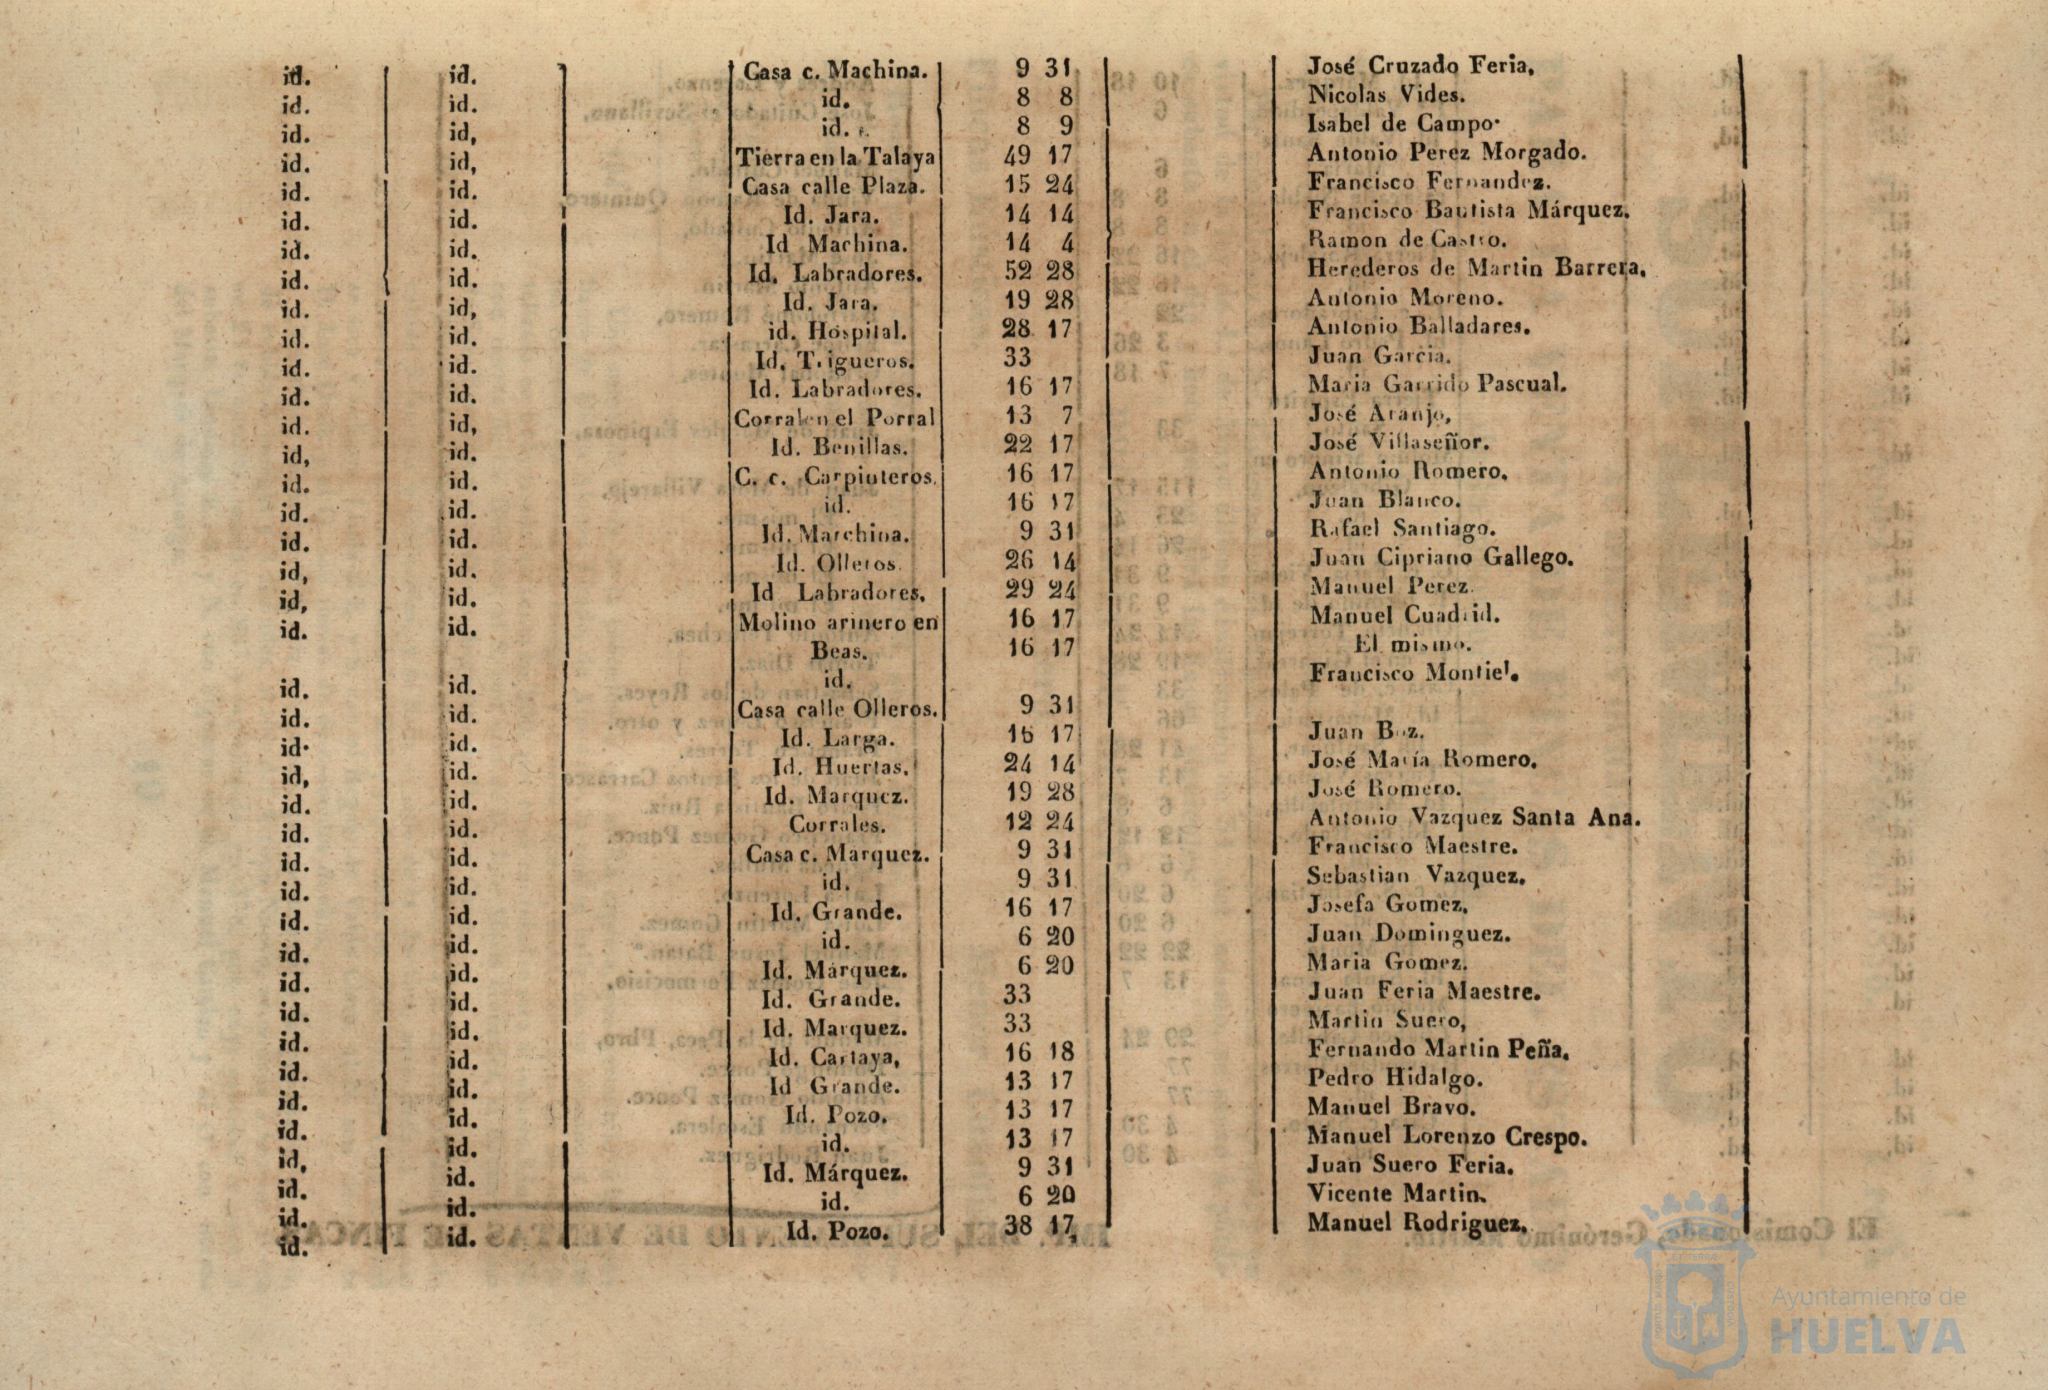 id. id. Casa c. Machina. 9 31 José Cruzado Feria,
id. id. id. 8 8 Nicolas Vides.
id. id, id. 8 9 Isabel de Campo·
id. id, Tierra en la Talaya 49 17 Antonio Perez Morgado.
id. id. Casa calle Plaza. 15 24 Francisco Fernandez.
id. id. Id. Jara. 14 14 Francisco Bautista Márquez.
id. id. Id Machina. 14 4 Ramon de Castro.
id. id. Id. Labradores. 52 28 Herederos de Martin Barrera,
id. id, Id. Jara. 19 28 Antonio Moreno.
id. id. id. Hospital. 28 17 Antonio Balladares.
id. id. Id. Trigueros. 33 Juan Garcia.
id. id. Id. Labradores. 16 17 Maria Garrido Pascual.
id. id, Corral en el Porral 13 7 José Aranjo,
id, id. Id. Benillas. 22 17 José Villaseñor.
id. id. C. c. Carpinteros. 16 17 Antonio Romero,
id. id. id. 16 17 Juan Blanco.
id. id. Id. Marchina. 9 31 Rafael Santiago.
id, id. Id. Olleros. 26 14 Juan Cipriano Gallego.
id, id. Id Labradores, 29 24 Manuel Perez.
id. id. Molino arinero en 16 17 Manuel Cuadrid.
Beas. 16 17 El mismo.
id. id. id. Francisco Montiel.
id. id. Casa calle Olleros. 9 31
id· id. Id. Larga. 16 17 Juan Boz.
id, id. Id. Huertas. 24 14 José María Romero.
id. id. Id. Marquez. 19 28 José Romero.
id. id. Corrales. 12 24 Antonio Vazquez Santa Ana.
id. id. Casa c. Marquez. 9 31 Francisco Maestre.
id. id. id. 9 31 Sebastian Vazquez.
id. id. Id. Grande. 16 17 Josefa Gomez.
id. id. id. 6 20 Juan Dominguez.
id. id. Id. Márquez. 6 20 Maria Gomez.
id. id. Id. Grande. 33 Juan Feria Maestre.
id. id. Id. Marquez. 33 Martin Suero,
id. id. Id. Cartaya, 16 18 Fernando Martin Peña.
id. id. Id Grande. 13 17 Pedro Hidalgo.
id. id. Id. Pozo. 13 17 Manuel Bravo.
id, id. id. 13 17 Manuel Lorenzo Crespo.
id. id. Id. Márquez. 9 31 Juan Suero Feria.
id. id. id. 6 20 Vicente Martin.
id. id. Id. Pozo. 38 17, Manuel Rodriguez.
Ayuntamiento de
HUELVA